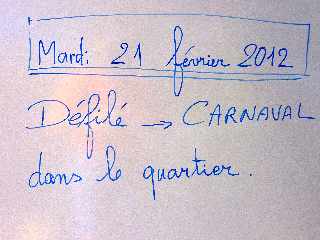 Mardi 21 février 2012
Défilé → CARNAVAL
dans le quartier.